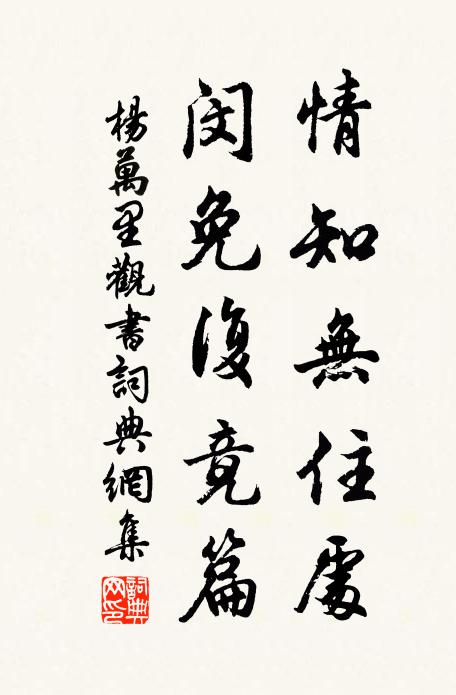 情知無住處
閔免復竟篇
楊萬里觀書詞典網集
詞典
网印